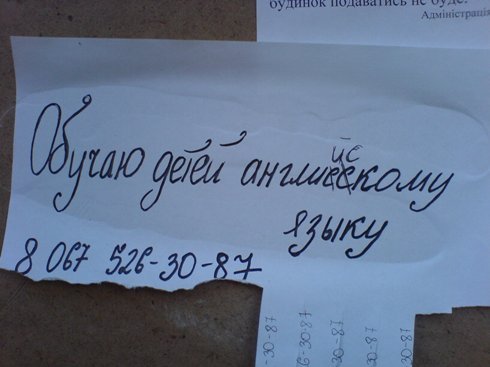 будинок подаватись не буде.
Адміністрація
Обучаю детей английскому
языку
8 067 526-30-87
-30-87
6-30-87
-30-87
-30-87
-30-87